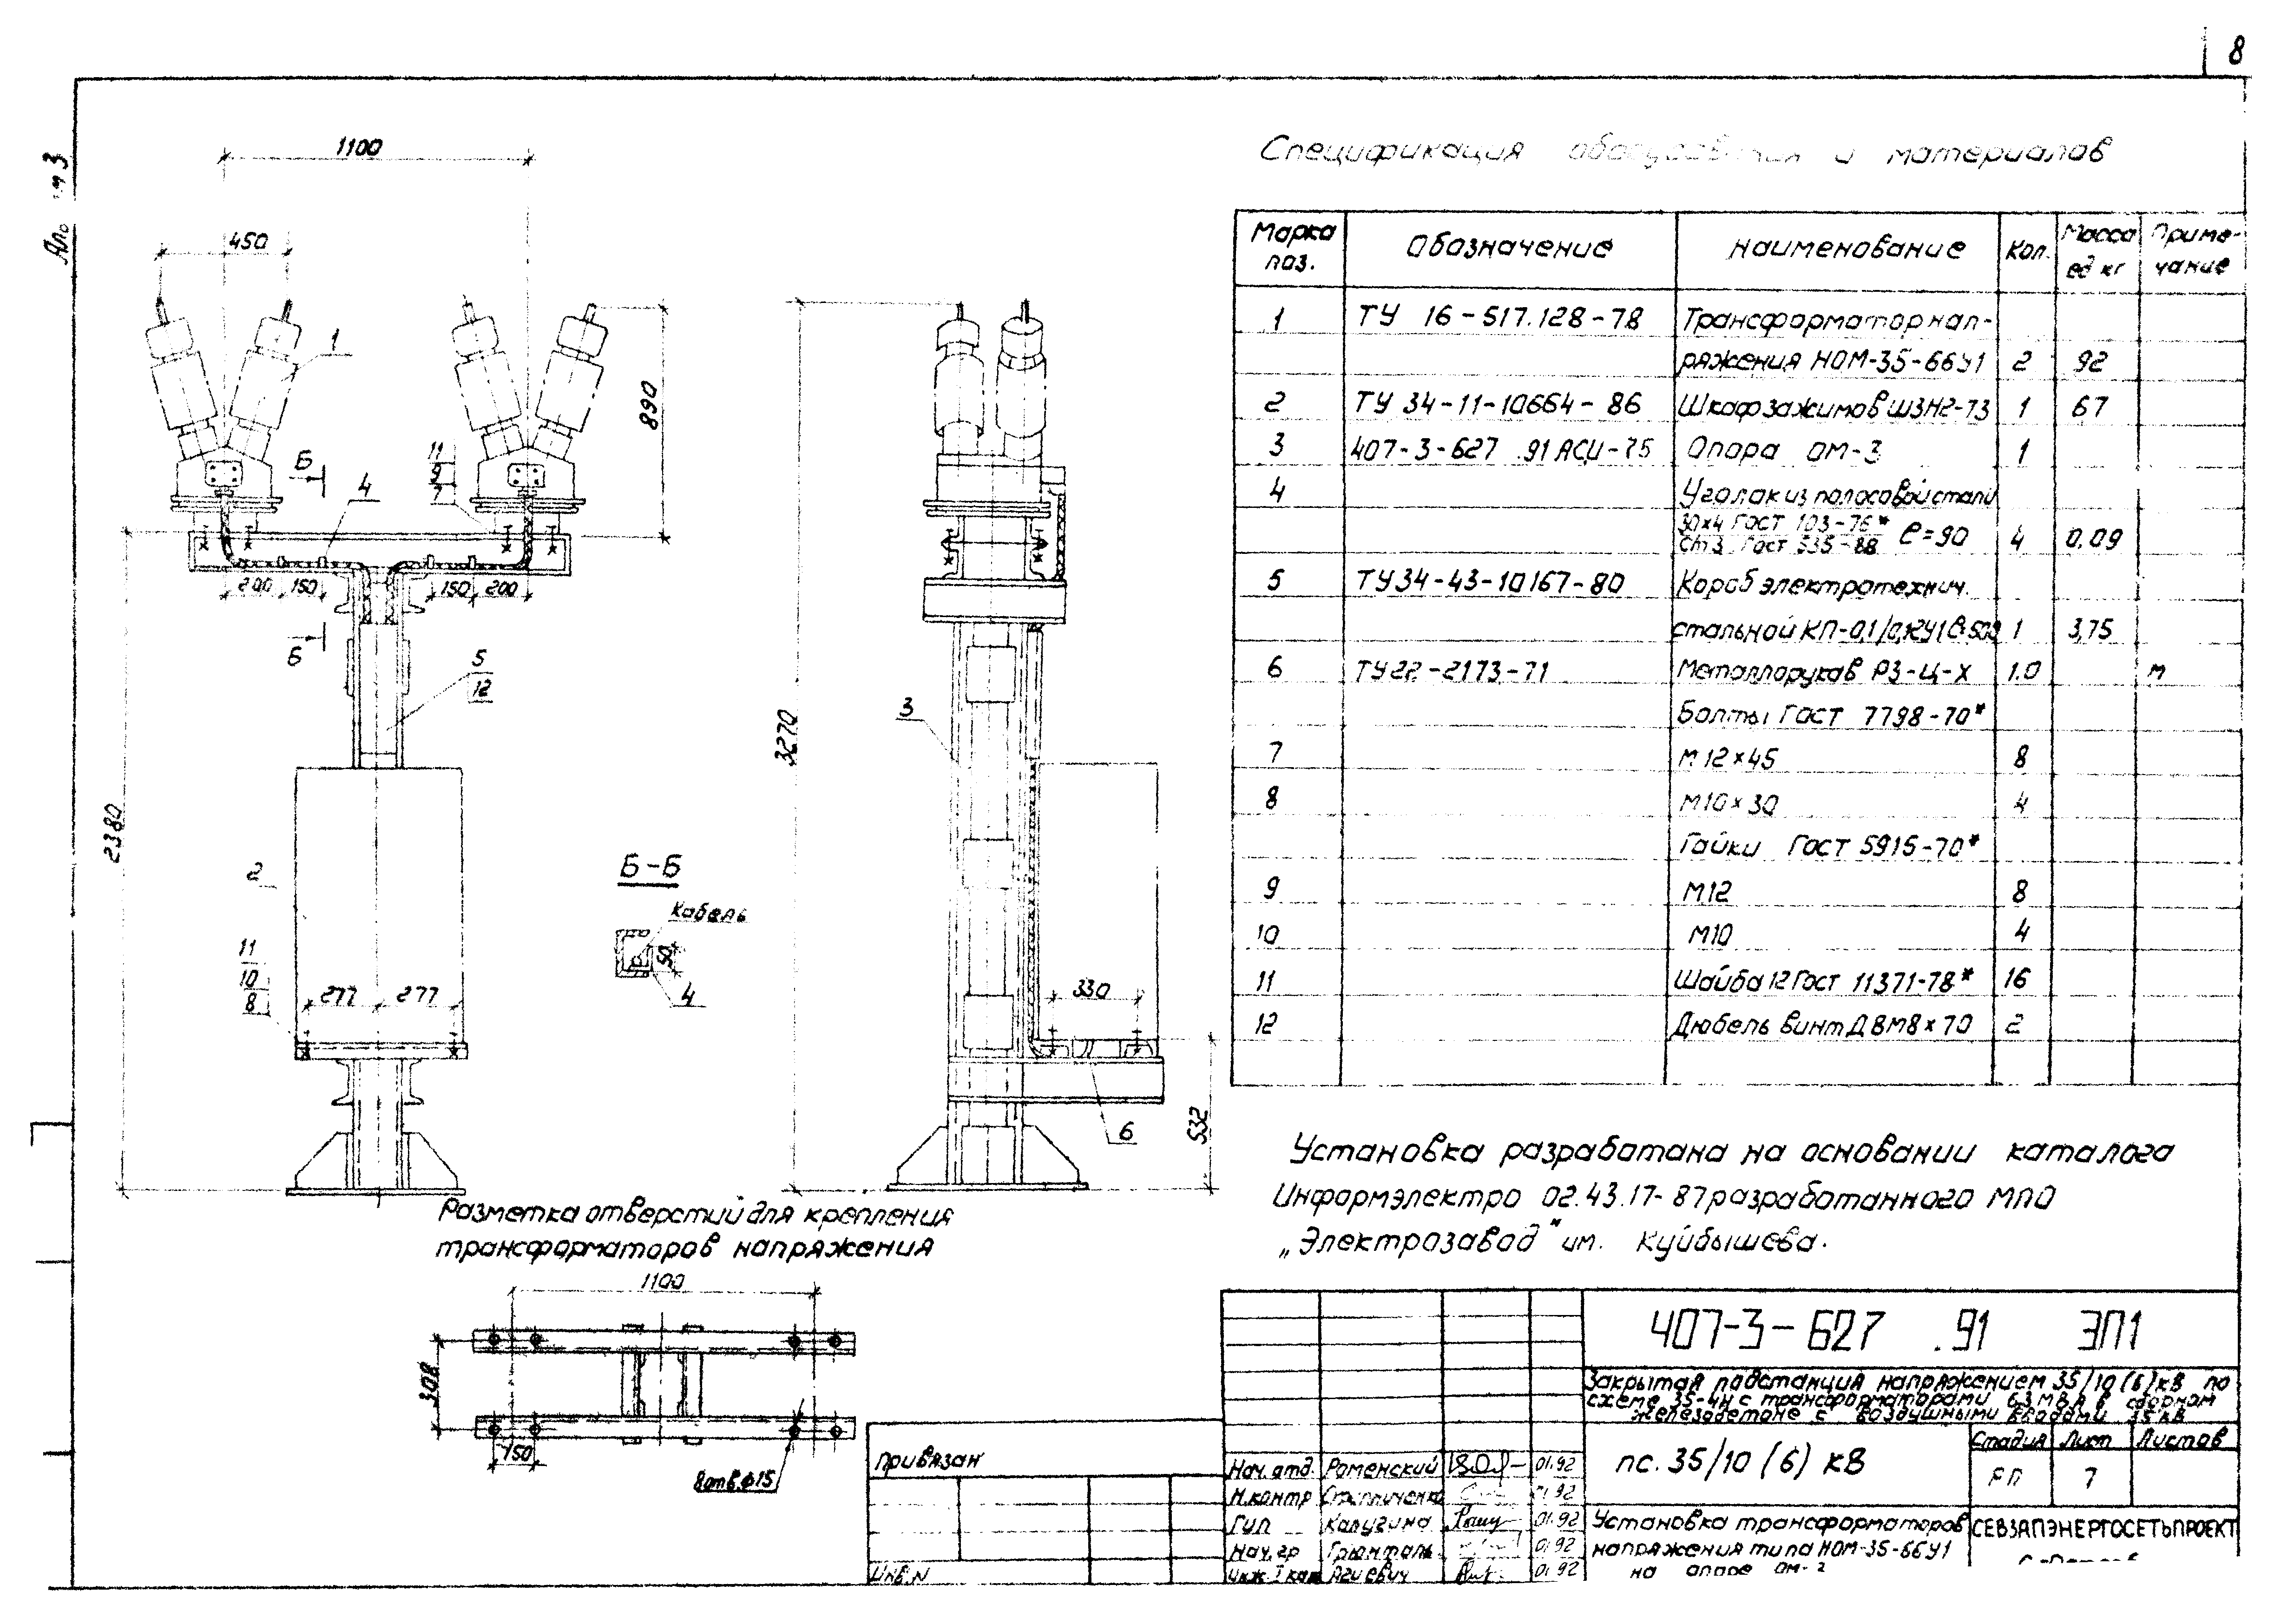 8
1100
450
1
890
Б
4
11
9
7
200
150
150
200
Б
5
12
2380
2
11
10
8
277
277
Б-Б
Кабель
50
4
3270
3
330
6
532
Разметка отверстий для крепления
трансформаторов напряжения
1100
308
150
8отв.ф15
Спецификация и материалов
Марка поз. Обозначение Наименование Кол. Масса ед кг Приме-чание
1 ТУ 16-517.128-78 Трансформатор нап-
ряжения НОМ-35-66У1 2 92
2 ТУ 34-11-10664-86 Шкаф зажимов ШЗН2-73 1 67
3 407-3-627 .91 АСИ-75 Опора ОМ-3 1
4 Уголок из полосовой стали
30×4 ГОСТ 103-76*
Ст3 ГОСТ 535-88 ℓ=90 4 0,09
5 ТУ34-43-10167-80 Короб электротехнич.
стальной КП-0,1/0,1-2У1 1 3,75
6 ТУ22-2173-71 Металлорукав РЗ-Ц-Х 1.0 м
Болты ГОСТ 7798-70*
7 М12×45 8
8 М10×30 4
Гайки ГОСТ 5915-70*
9 М12 8
10 М10 4
11 Шайба 12 ГОСТ 11371-78* 16
12 Дюбель винт ДВМ8×70 2
Установка разработана на основании каталога
Информэлектро 02.43.17-87 разработанного МПО
„Электрозавод" им. Куйбышева.
407-3-627 .91 ЭП1
Закрытая подстанция напряжением 35/10(6)кВ по
схеме 35-4Н с трансформаторами 6,3 МВА в сборном
железобетоне с воздушными вводами 35кВ
пс. 35/10 (6) кВ
Стадия Лист Листов
РП 7
Установка трансформаторов
напряжения типа НОМ-35-66У1
на опоре ОМ-
СЕВЗАПЭНЕРГОСЕТЬПРОЕКТ
Нач. отд. Роменский 01.92
Н.контр 01.92
ГИП Калугина 01.92
Нач. гр Грюнталь 01.92
Инж. I кат Агиевич 01.92
Привязан
Инв.N